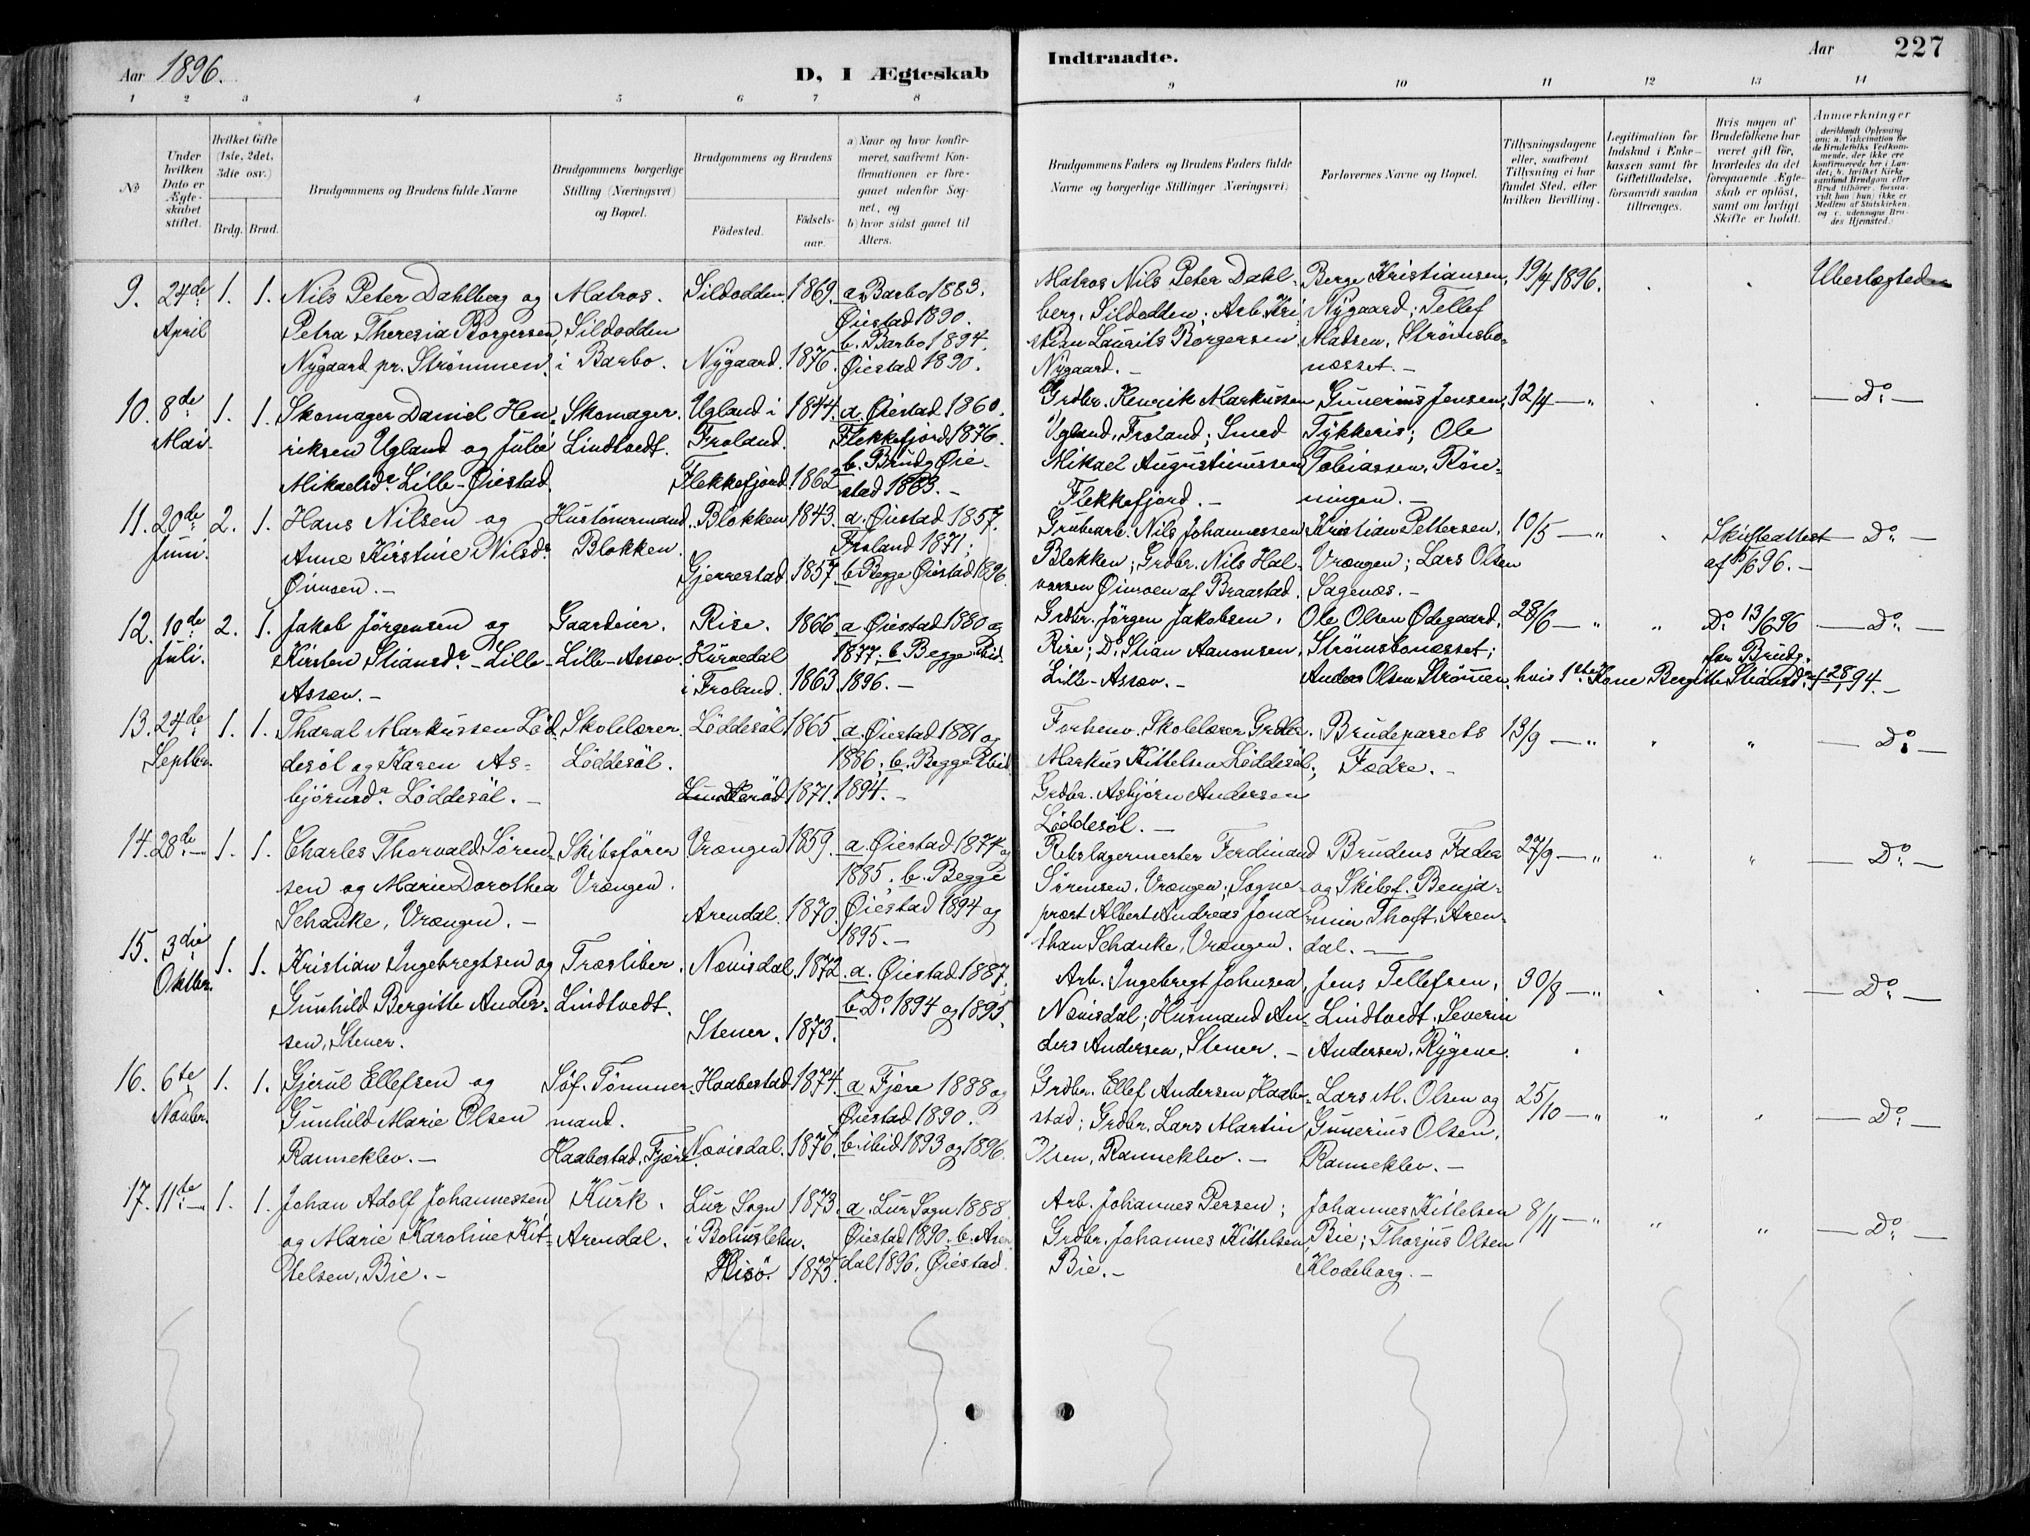 Aar 1896.
D, I Ægteskab
Indtraadte.
Aar 227
1 2 3 4 5 6 7 8 9 10 11 12 13 14
No
Under hvilken Dato er Ægteskabet stiftet.
Hvilket Gifte (1ste, 2det, 3die osv.)
Brdg. Brud.
Brudgommens og Brudens fulde Navne
Brudgommens borgerlige Stilling (Næringsvei) og Bopæl.
Brudgommens og Brudens
Födested.
Födsels-aar.
a) Naar og hvor konfirmeret, saafremt Konfirmationen er foregaaet udenfor Sognet, og
b) hvor sidst gaaet til Alters.
Brudgommens Faders og Brudens Faders fulde Navne og borgerlige Stillinger (Næringsvei)
Forlovernes Navne og Bopæl.
Tillysningsdagene eller, saafremt Tillysning ei har fundet Sted, efter hvilken Bevilling.
Legitimation for Indskud i Enkekassen samt for Giftetilladelse, forsaavidt saadan tiltrænges.
Hvis nogen af Brudefolkene har været gift før, hvorledes da det foregaaende Ægteskab er opløst, samt om lovligt Skifte er holdt.
Anmærkninger
9. 24de April 1. 1. Nils Peter Dahlberg og Petra Theresia Börgersen, Nygaard pr. Strömmen.
Matros. Sildodden i Barbo.
Sildodden. 1869.
Nygaard. 1876.
a. Barbo 1883. Øiestad 1890. b. Barbo 1894. Øiestad 1890.
Matros Nils Peter Dahlberg, Sildodden; Arb. Kristian Laurits Börgersen Nygaard. –
Berge Kristiansen, Nygaard; Tellef Madsen, Strömsbonæsset. –
19/4 1896.
Ubeslægtede
10. 8de Mai. 1. 1. Skomager Daniel Henriksen Ugland og Julie Mikaelsdr. Lille-Øiestad.
Skomager. Lindtvedt.
Ugland i Froland. 1844.
Flekkefjord. 1862
a. Øiestad 1860. Flekkefjord 1876. b. Brudg Øiestad 1883. –
Grdbr. Henrik Markussen Ugland, Froland; Smed Mikael Augustinussen Flekkefjord. –
Gunerius Jensen, Tykkeris; Ole Tobiassen, Rönningen. –
12/4 — "
— Do. —
11. 20de Juni. 2. 1. Hans Nilsen og Anne Kirstine Nilsdr. Øimoen. –
Husmand Blokken.
Blokken 1843.
Gjerrestad. 1857
a. Øiestad 1857. Froland 1871; b. Begge Øiestad 1896.
Grubearb. Nils Johannessen Blokken; Grdbr. Nils Halvorsen Øimoen af Braastad.
Kristian Pettersen, Vrængen; Lars Olsen Sagenæs. –
10/5 — "
Skifteattest af /6 96. –
— Do. —
12. 10de Juli. 2. 1. Jakob Jörgensen og Kirsten Stiansdr. Lille-Assæv. –
Gaardeier. Lille-Assæv.
Rise. 1866
Hurvedal i Froland. 1863.
a. Øiestad 1880 og 1877. b. Begge ibid 1896. –
Grdbr. Jörgen Jakobsen, Rise; Do. Stian Aanonsen, Lille-Assæv. –
Ole Olsen Ødegaard, Strömsbonæsset; Anders Olsen Strömmen.
28/6 — "
Do. 13/6 96 for Brudg. hvis 1ste Kone Bergitte Stiansdr. † 28/1 94. –
— Do. —
13. 24de Septbr. 1. 1. Tharal Markussen Löddesöl og Karen Asbjörnsdr. Löddesöl. –
Skolelærer. Löddesöl.
Löddesöl 1865
Lunderöd 1871.
a. Øiestad 1881 og 1886. b. Begge ibid. 1894. –
Forhenv. Skolelærer Grdbr. Markus Kittelsen Löddesöl; Grdbr. Asbjörn Andersen Löddesöl. –
Brudeparrets Fædre. –
13/9 — "
— Do. —
14. 28de — 1. 1. Charles Thorvald Sörensen og Marie Dorothea Schanke, Vrængen. –
Skibsförer Vrængen.
Vrængen 1859.
Arendal. 1870.
a. Øiestad 1874 og 1885. b. Begge Øiestad 1894 og 1895. –
Rebslagermester Ferdinand Sörensen, Vrængen; Sognepræst Albert Andreas Jonathan Schanke, Vrængen.
Brudens Fader og Skibsf. Benjamin Thoft, Arendal. —
27/9 — "
— Do. —
15. 3die Oktbr. 1. 1. Kristian Ingebregtsen og Gunhild Bergitte Andersen, Stener.
Træsliber. Lindtvedt.
Nævisdal. 1872.
Stener. 1873.
a. Øiestad 1887. b. Do. 1894 og 1895.
Arb. Ingebregt Johnsen, Nævisdal; Husmand Anders Andersen, Stener. –
Jens Tellefsen, Lindtvedt. Severin Andersen, Rygene.
30/8 — "
— Do. —
16. 6te Novbr. 1. 1. Gjerul Ellefsen og Gunhild Marie Olsen Ranneklev. –
Söf. Tömmermand. Haabestad, Fjære.
Haabestad. 1874.
Nævisdal. 1876.
a. Fjære 1888 og Øiestad 1890. b. ibid 1893 og 1896.
Grdbr. Ellef Andersen Haabestad; Grdbr. Lars Martin Olsen, Ranneklev. –
Lars M. Olsen og Gunerius Olsen, Ranneklev. –
25/10 — "
— Do. —
17. 11te — 1. 1. Johan Adolf Johannessen og Marie Karoline Kittelsen, Bie. –
Kusk. Arendal.
Lur Sogn i Bohuslehn. 1873.
Hisö. 1875.
a. Lur Sogn 1888. Øiestad 1890. b. Arendal 1896. Øiestad
Arb. Johannes Persen; Grdbr. Johannes Kittelsen Bie. –
Johannes Kittelsen Bie; Thosjus Olsen Klodeborg. –
8/11 — "
— Do. —